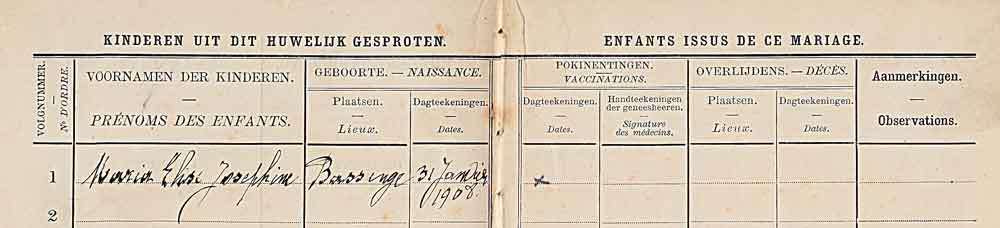 KINDEREN UIT DIT HUWELIJK GESPROTEN. ENFANTS ISSUS DE CE MARIAGE.
VOLGNUMMER. — Nº D'ORDRE.
VOORNAMEN DER KINDEREN.
—
PRÉNOMS DES ENFANTS.
GEBOORTE. — NAISSANCE.
Plaatsen.
Lieux.
Dagteekeningen.
Dates.
POKINENTINGEN.
VACCINATIONS.
Dagteekeningen.
Dates.
Handteekeningen
der geneesheeren.
Signature
des médecins.
OVERLIJDENS. — DÉCÈS.
Plaatsen.
Lieux.
Dagteekeningen.
Dates.
Aanmerkingen.
—
Observations.
1 Maria Elise Josephine Bassenge 31 Janvier
1908.
2